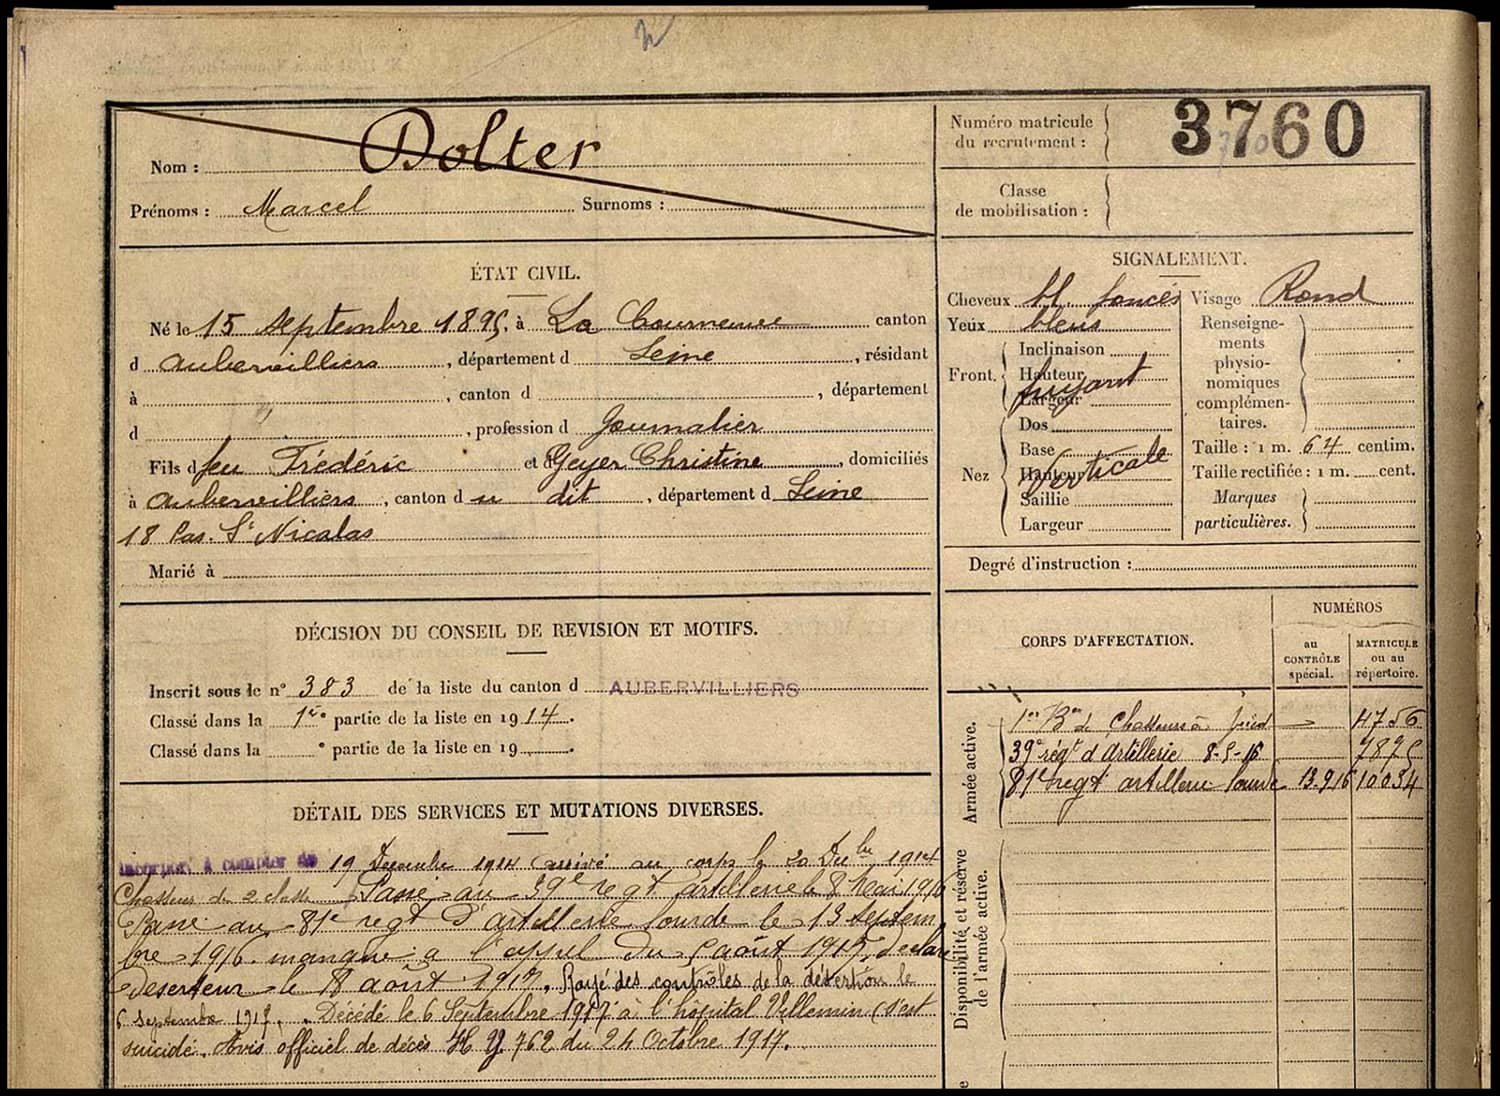 Nom : Dolter
Prénoms : Marcel Surnoms :
Numéro matricule
du recrutement : 3760
Classe
de mobilisation :
ÉTAT CIVIL.
Né le 15 septembre 1895, à La Courneuve canton
d Aubervilliers, département d Seine, résidant
à , canton d , département
d , profession d Journalier
Fils d feu Frédéric et d Geyer Christine, domiciliés
à Aubervilliers, canton d u dit, département d Seine
18 Pas. St Nicolas
Marié à
SIGNALEMENT.
Cheveux bl. foncés
Yeux bleus
Front. Inclinaison
Hauteur fuyant
Largeur
Nez Dos
Base
Hauteur Verticale
Saillie
Largeur
Visage Rond
Renseigne-
ments
physio-
nomiques
complémen-
taires.
Taille : 1 m. 64 centim.
Taille rectifiée : 1 m. cent.
Marques
particulières.
Degré d'instruction :
DÉCISION DU CONSEIL DE REVISION ET MOTIFS.
Inscrit sous le n° 383 de la liste du canton d AUBERVILLIERS
Classé dans la 1re partie de la liste en 1914.
Classé dans la ° partie de la liste en 19 .
CORPS D'AFFECTATION.
NUMÉROS
au
CONTRÔLE
spécial.
MATRICULE
ou au
répertoire.
Armée active.
1er Bon de Chasseurs à pied 4756
39e régt d'Artillerie 8-5-16 7895
81e regt artillerie lourde 13.9.16 10034
Disponibilité et réserve
de l'armée active.
DÉTAIL DES SERVICES ET MUTATIONS DIVERSES.
Incorporé à compter du 19 Decembre 1914 arrivé au corps le 20 Dcbre 1914
Chasseur de 2 classe Passé au 39e regt artillerie le 8 Mai 1916
Passé au 81e regt d'artillerie lourde le 13 Septem
bre 1916. manque a l'appel du 5 août 1917, declaré
Deserteur le 8 août 1917. Rayé des contrôles de la désertion le
6 septembre 1917. Décédé le 6 Septembre 1917 à l'hôpital Villemin (s'est
suicidé. Avis officiel de décès 762 du 24 Octobre 1917.